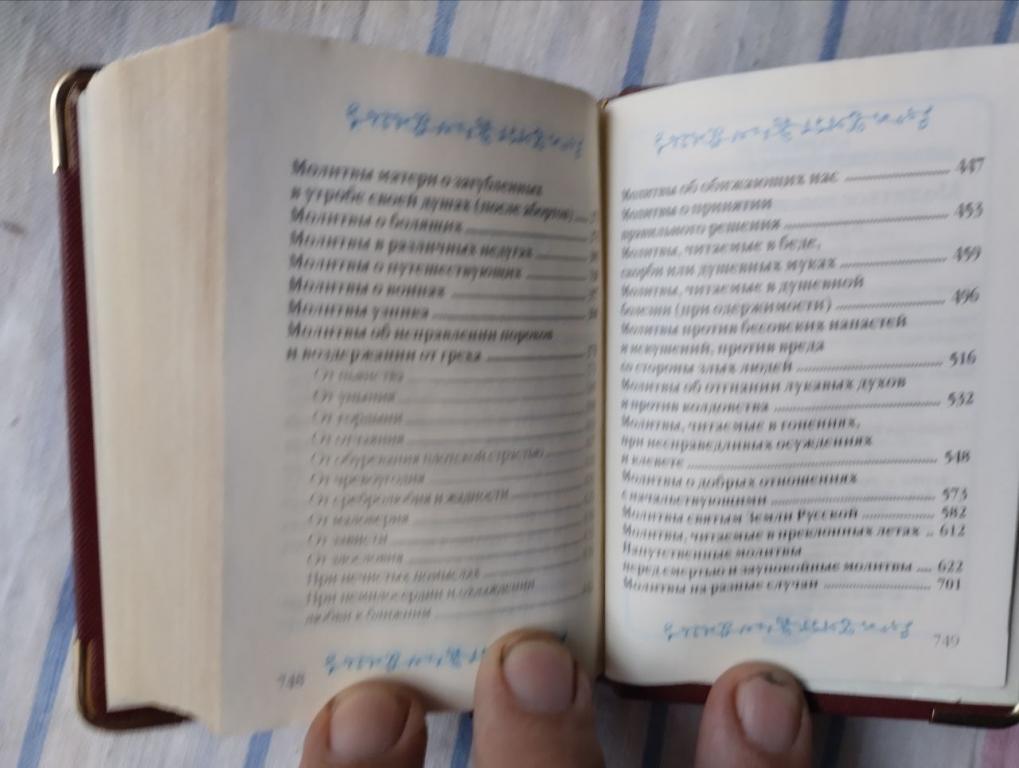 Молитвы матери о загубленных
в утробе своей душах (после аборта)
Молитвы о болящих
Молитвы в различных недугах
Молитвы о путешествующих
Молитвы о воинах
Молитвы узника
Молитвы об исправлении пороков
и воздержании от греха
От пьянства
От уныния
От гордыни
От отчаяния
От обуревания плотской страстью
От чревоугодия
От сребролюбия и жадности
От маловерия
От зависти
От злословия
При нечистых помыслах
При немилосердии и охлаждении
любви к ближним
748
Молитвы об обижающих нас 447
Молитвы о принятии
правильного решения 453
Молитвы, читаемые в беде,
скорби или душевных муках 459
Молитвы, читаемые в душевной
болезни (при одержимости) 496
Молитвы против бесовских напастей
и искушений, против вреда
со стороны злых людей 516
Молитвы об отгнании лукавых духов
и против колдовства 532
Молитвы, читаемые в гонениях,
при несправедливых осуждениях
и клевете 548
Молитвы о добрых отношениях
с начальствующими 573
Молитвы святым Земли Русской 582
Молитвы, читаемые в преклонных летах .. 612
Напутственные молитвы
перед смертью и заупокойные молитвы .... 622
Молитвы на разные случаи 701
749